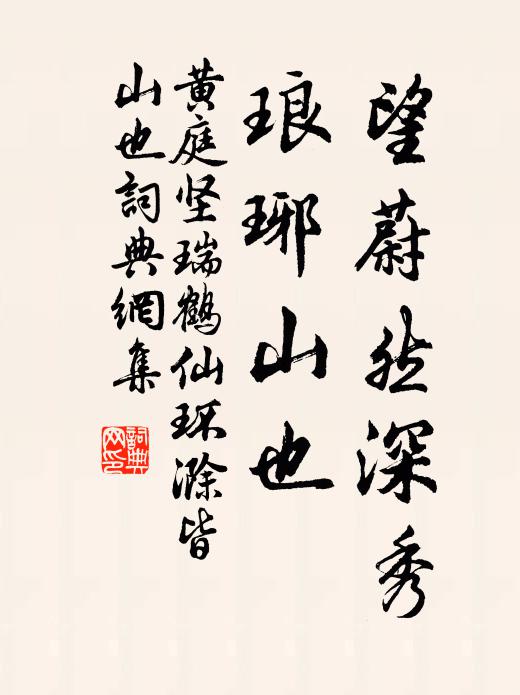 望蔚然深秀
琅琊山也
黄庭坚瑞鹤仙环滁皆
山也词典網集
詞典
网印